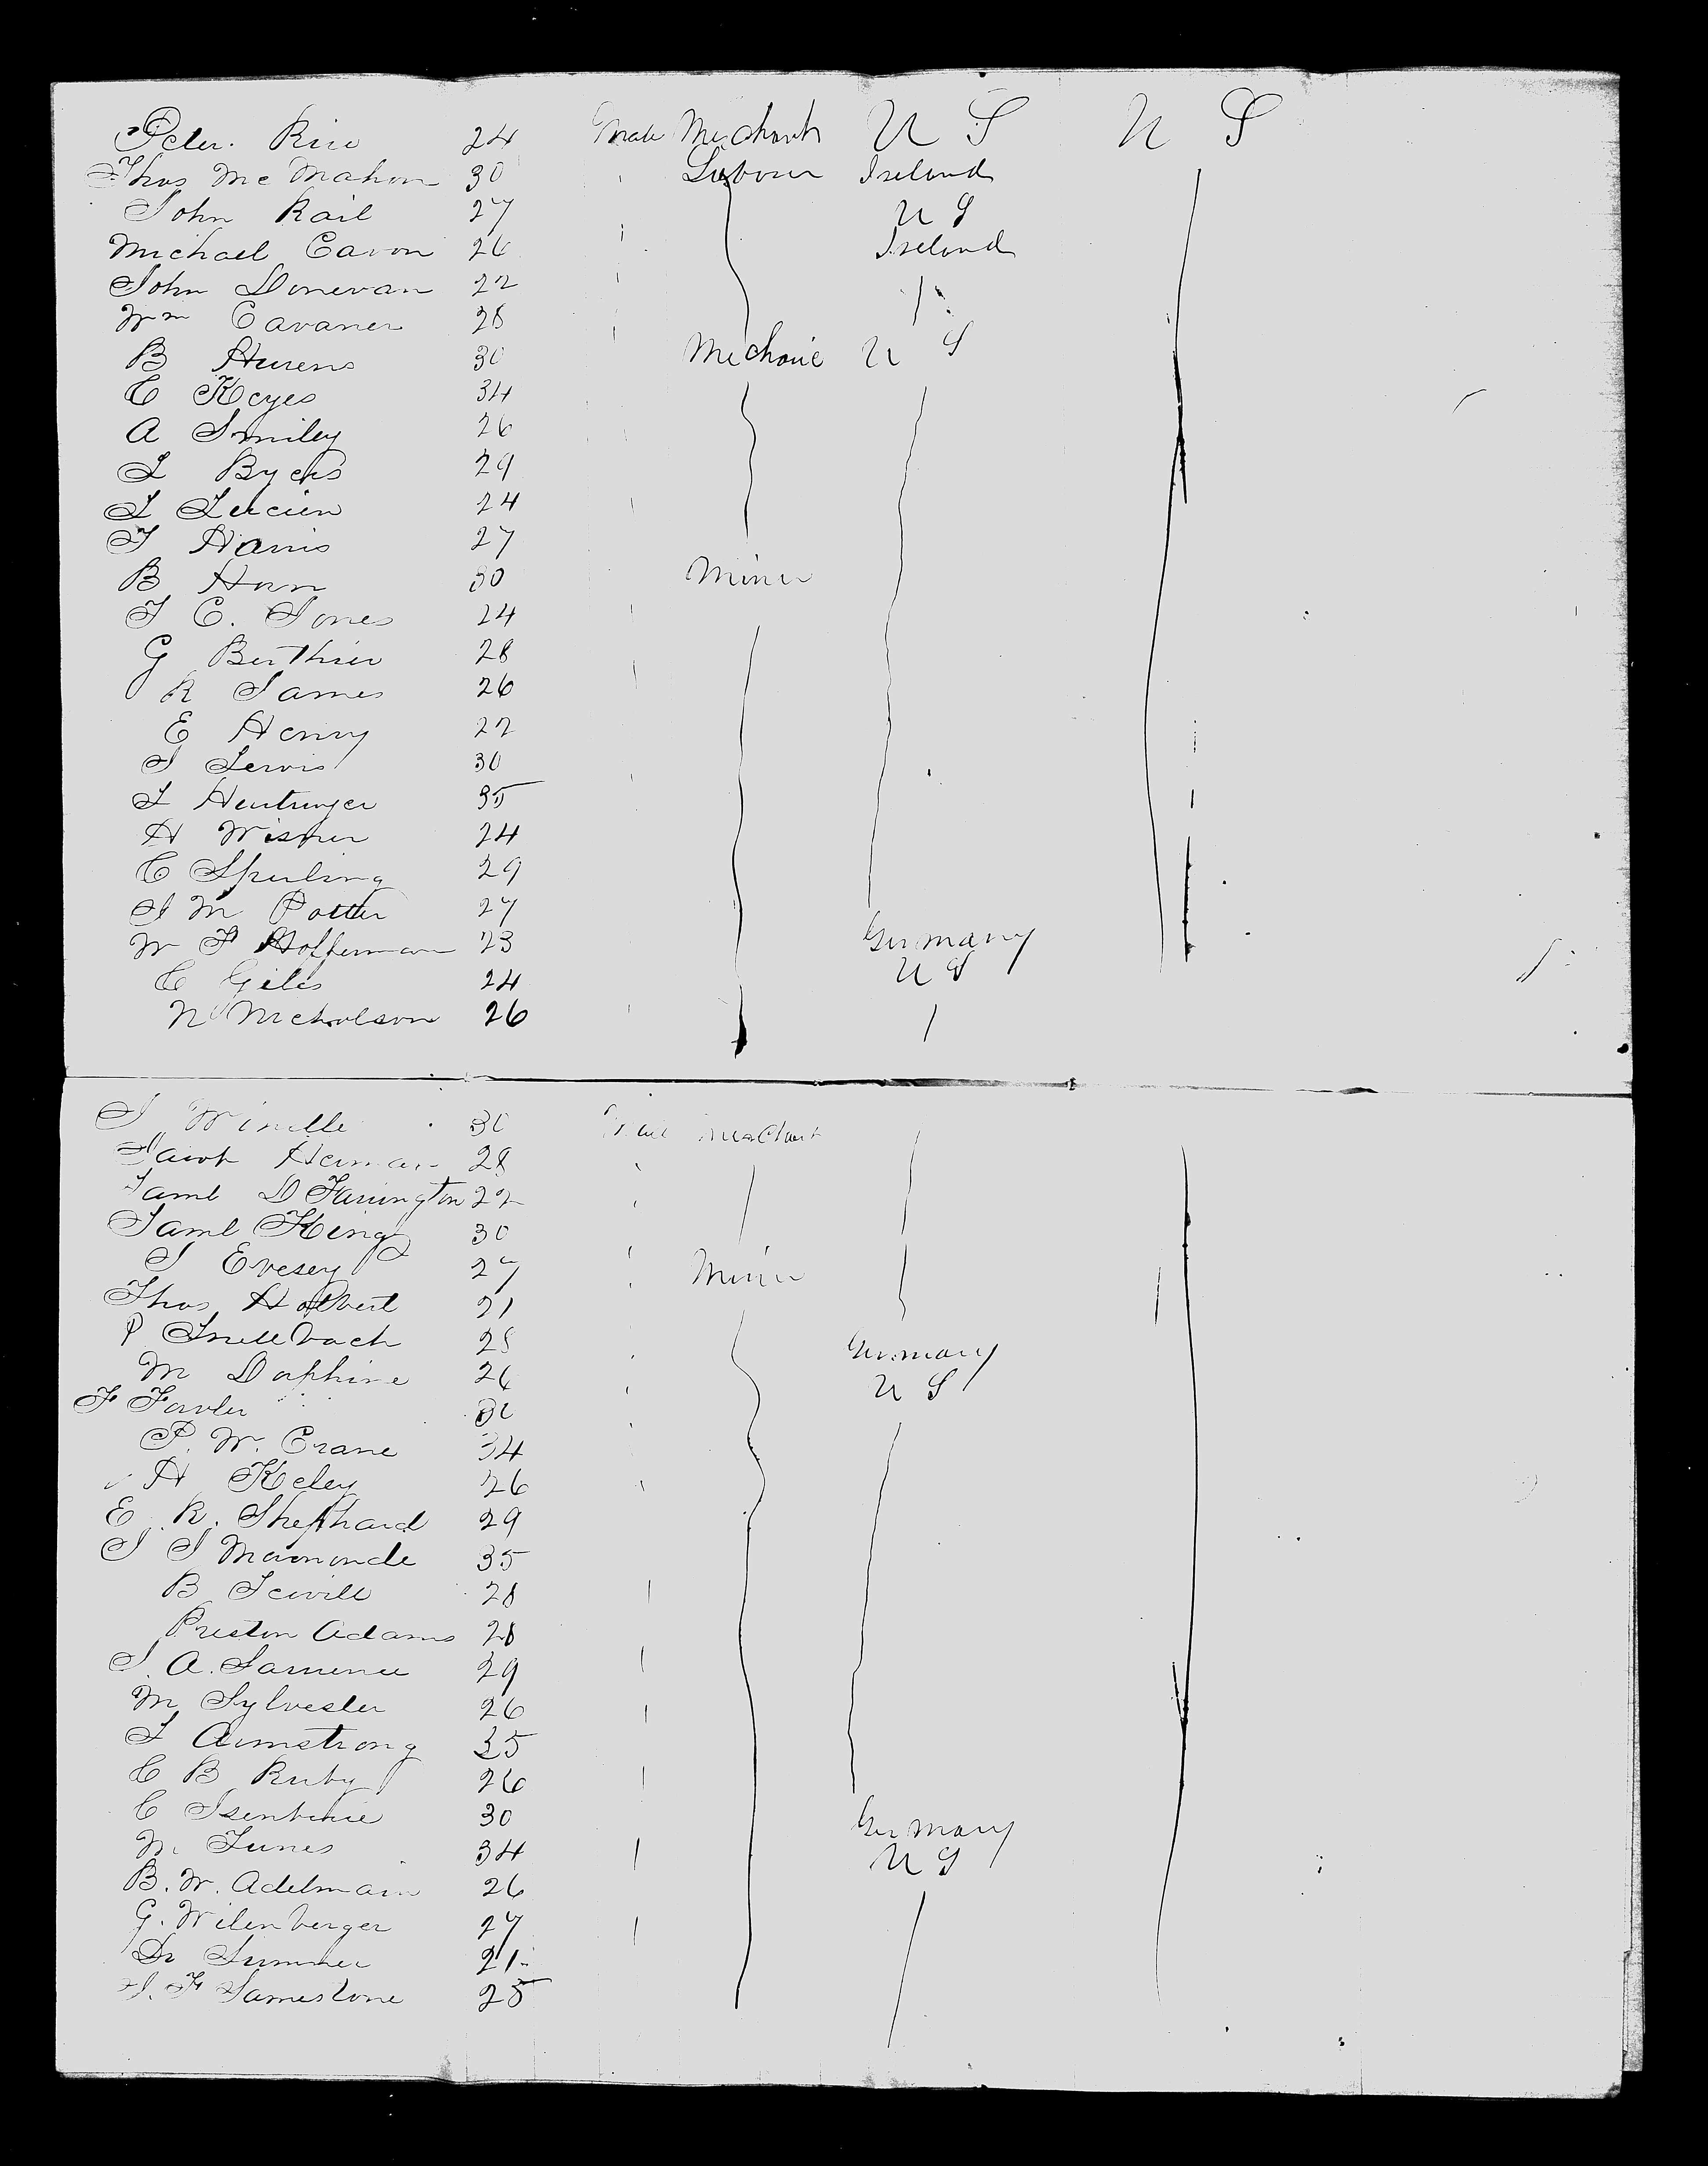 Peter. Rice 24 Male Merchant U S U S
Thos McMahon 30 Labour Ireland
John Rail 27 U S
Michael Cavon 26 Ireland
John Donevan 22
Wm Cavaner 28
B Hurens 30 Mechanic U S
C Keyes 34
A Smiley 26
L Byers 29
L Lucien 24
T Harris 27
B Horn 30 Miner
T C. Jones 24
G Berthier 28
R James 26
E Henry 22
S Lewis 30
L 35
H Wisner 24
C Sperling 29
J M Potter 27
W F Hofferman 23 Germany
C Giles 24 U S
N Nicholson 26
30 Male Merchant
Jacob Herman 28
Saml D Farrington 22
Saml King 30
S Evesey 27 Miner
Thos Holbert 21
P Snellbach 28 Germany
M Dorphine 26 U S
F Fowler
P. W. Crane 34
H Keley 26
E. R. Shephard 29
35
B Scoville 28
Preston Adams 28
S. A. 29
M Sylvester 26
L Armstrong 35
C B Ruby 26
C 30 Germany
M Junes 34 U S
B. W. Adelmann 26
G. Wilenberger 27
Dr Summer 21
J. F Jamestone 25